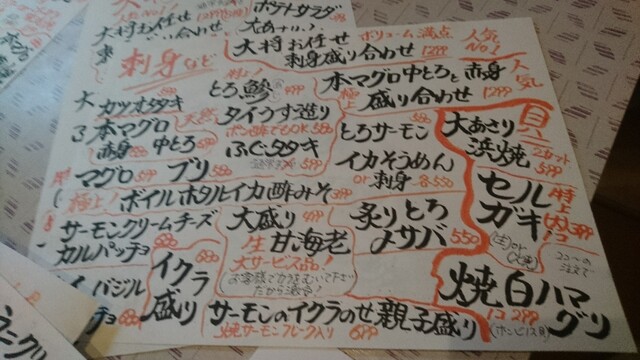 大将お任せ
ポテトサラダ
人気No.1
ボリューム満点
大将お任せ
刺身盛り合わせ 1299
刺身など
特上!
とろ鯵
本マグロ中とろと赤身
極上 盛り合わせ 1299
人気
貝
カツオタタキ
天然
タイうす造り
ポン酢でもOK 550
とろサーモン
大あさり
浜焼
2コセット
599
本マグロ
赤身 中とろ
ふぐタタキ
599
イカそうめん
or 刺身 各550
マグロ
ブリ
550
セル
ガキ
特上
極上!
ボイルホタルイカ酢みそ
サーモンクリームチーズ
カルパッチョ
680
大盛り
生 甘海老
大サービス品!
お客様でカラをむいて下さい
だから激安!
炙りとろ
〆サバ 550
1コからの
注文で
バジル
イクラ
盛り
680
焼白ハマ
グリ
1コ 299
(ポン酢)
サーモンのイクラのせ親子盛り
焼サーモンフレーク入り 699